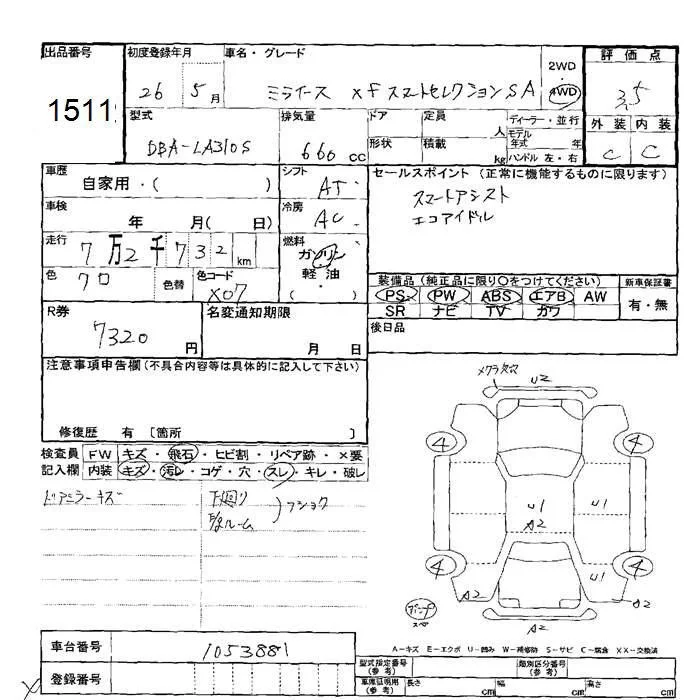 出品番号 初度登録年月 車名・グレード 2WD 評価点
1511 26 5月 ミライース Xfスマートセレクション SA 4WD 3.5
型式 排気量 ドア 定員 人 ディーラー・並行 外装 内装
DBA-LA310S 660cc 形状 積載 kg モデル年式 年 ハンドル 左・右 C C
車歴 自家用・( ) シフト AT セールスポイント (正常に機能するものに限ります)
車検 年 月( 日) 冷房 AC スマートアシスト
エコアイドル
走行 7万2千732km 燃料 ガソリン・軽油 ( )
色 クロ 色替 色コード X07 装備品 (純正品に限り○をつけてください) 新車保証書
PS PW ABS エアB AW 有・無
SR ナビ TV カワ
R券 7320円 名変通知期限 月 日 後日品
注意事項申告欄 (不具合内容等は具体的に記入して下さい)
修復歴 有 〔箇所
検査員 FW キズ・飛石・ヒビ割・リペア跡・×要
記入欄 内装 キズ・汚レ・コゲ・穴・スレ・キレ・破レ
ドアミラーキズ 下廻り
ルーム
フショク
メクラ欠 U2
4 4
U1 U1
A2
4 4
U1
A2 A2
A2
スペ
車台番号 1053881
登録番号
A-キズ E-エクボ U-凹み W-補修跡 S-サビ C-腐食 XX-交換済
型式指定番号 (参考) 類別区分番号 (参考)
車庫証明用 (参考) 長さ cm 幅 cm 高さ cm